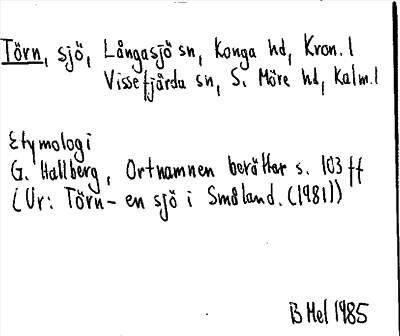 Törn, sjö, Långasjö sn, Konga hd, Kron. l
Vissefjärda sn, S. Möre hd, Kalm. l
Etymologi
G. Hallberg, Ortnamnen berättar s. 103 ff
(Ur: Törn - en sjö i Småland. (1981))
B Mel 1985